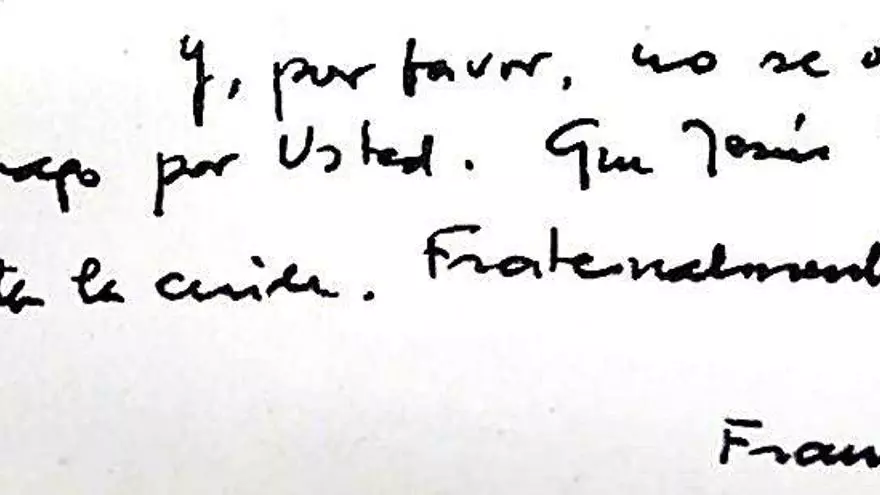 Y, por favor, no se o
hago por Usted. Que Jesús
la cuide. Fraternalment
Fran